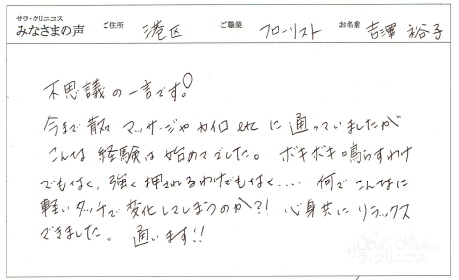 サラ・クリニコス
みなさまの声 ご住所 港区 ご職業 フローリスト お名前 吉澤 裕子
不思議の一言です!
今まで散々 マッサージやカイロ etc に 通っていましたが
こんな 経験は始めてでした。 ボキボキ鳴らすわけ
でもなく、強く押されるわけでもなく.... 何でこんなに
軽いタッチで変化してしまうのか?! 心身共に リラックス
できました。 通います!!
サラ・クリニコス